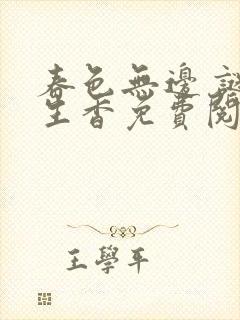 春色無邊 謎
生香免費閱
王學平